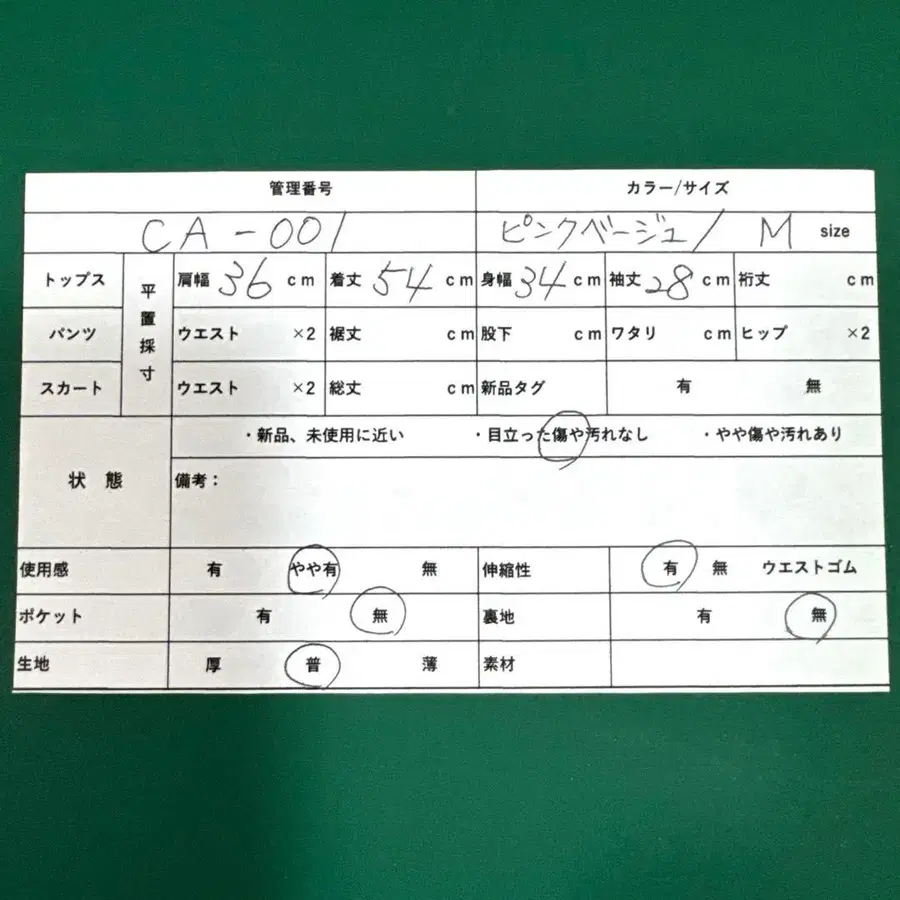 管理番号 カラー/サイズ
CA-001 ピンクベージュ/ M size
トップス 平置採寸 肩幅 36 cm 着丈 54 cm 身幅 34 cm 袖丈 28 cm 裄丈 cm
パンツ ウエスト ×2 裾丈 cm 股下 cm ワタリ cm ヒップ ×2
スカート ウエスト ×2 総丈 cm 新品タグ 有 無
状態 ・新品、未使用に近い ・目立った傷や汚れなし ・やや傷や汚れあり
備考：
使用感 有 やや有 無 伸縮性 有 無 ウエストゴム
ポケット 有 無 裏地 有 無
生地 厚 普 薄 素材